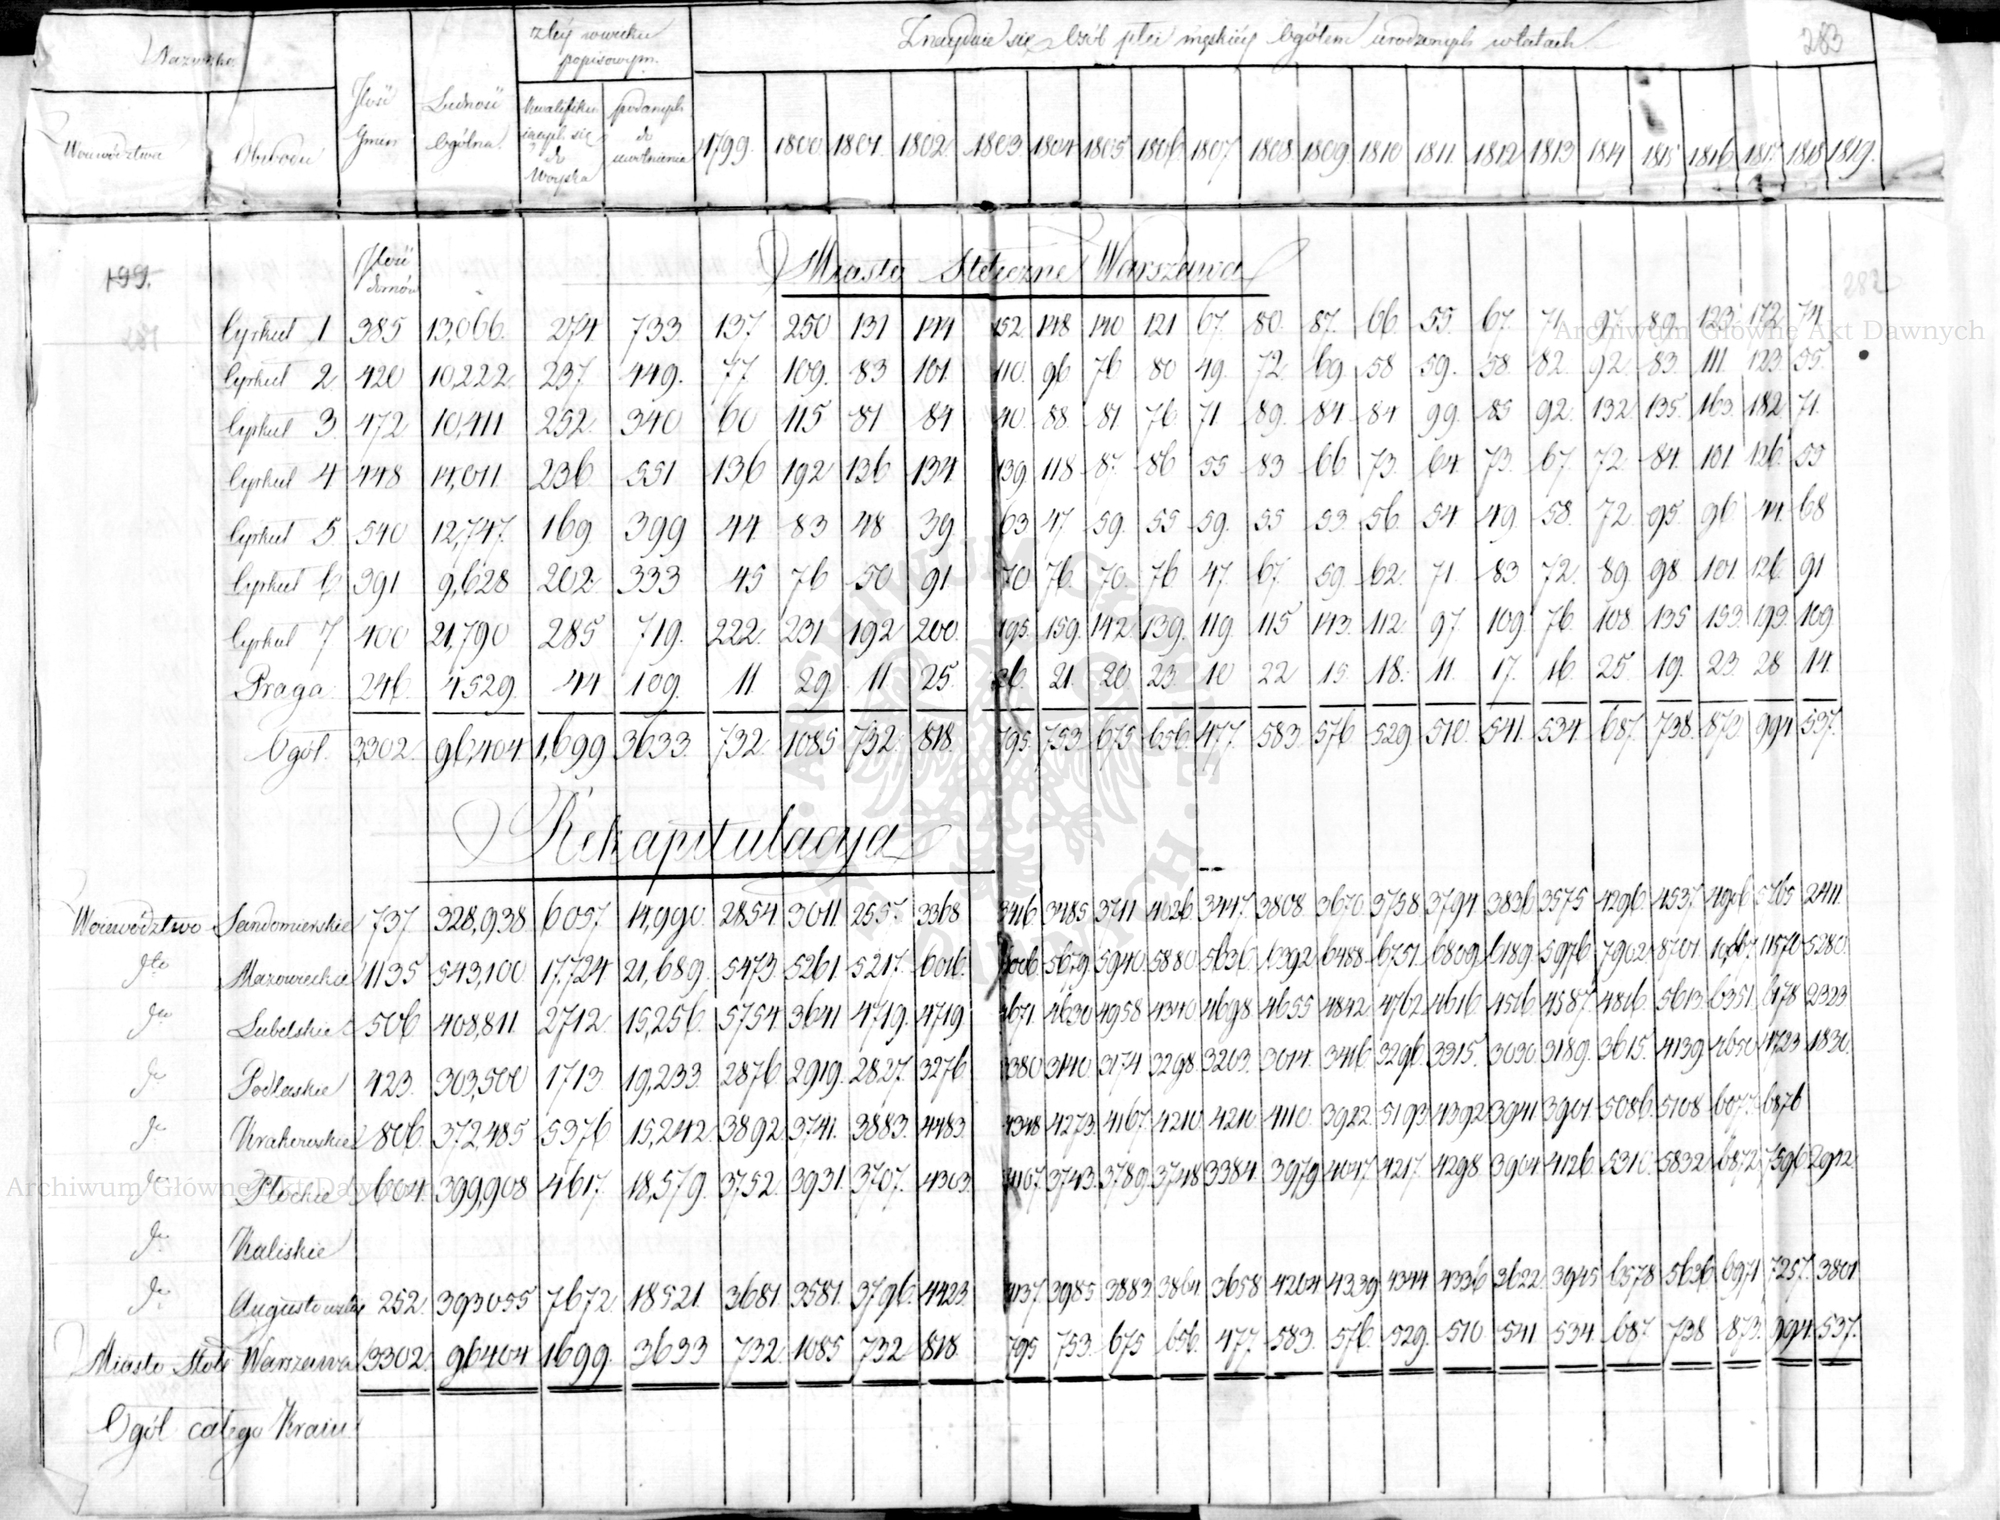 283
Nazwiska
z téy w wieku popisowym.
Znayduie się osób płci męzkiéy ogółem urodzonych w latach
Woiewództwa Obwodu Ilość Gmin Ludność Ogólna kwalifikuiących się do Woyska podanych do uwolnienia 1799. 1800 1801. 1802. 1803 1804 1805 1806 1807 1808 1809 1810 1811. 1812 1813 1814 1815 1816 1817 1818 1819.
Ilość domów
Miasto Stołeczne Warszawa
Cyrkuł 1 385 13,066. 274. 733 137 250 131 144 152. 148 140 121 67. 80. 87. 66. 55. 67. 71. 97. 89. 123. 172. 74.
Cyrkuł 2 420 10,222 237. 449. 77. 109. 83 101. 110. 96 76 80 49. 72. 69. 58 59. 58. 82. 92. 83. 111. 123. 55.
Cyrkuł 3. 472 10,411 252. 340 60 115 81 84 88. 81. 76. 71. 89. 84 84 99. 85 92. 132. 135. 163. 182. 71.
Cyrkuł 4 448 14,011 236 551 136 192 136 134. 139 118 87. 86 55 83 66 73. 64. 73. 67. 72. 84. 101. 126. 55
Cyrkuł 5. 540 12,747. 169 399 44. 83 48 39. 63 47. 59. 55 59. 55 53. 56. 54 49. 58. 72. 95. 96. 68
Cyrkuł 6. 391 9,628 202. 333 45 76 50 91 70 76. 70 76. 47. 67. 59. 62. 71. 83 72. 89. 98. 101. 126. 91
Cyrkuł 7 400 21,790 285 719. 222. 231 192 200. 195. 159. 142. 139. 119. 115 143. 112. 97. 109 76. 108. 135 153. 193. 109
Praga. 246. 4529. 44 109. 11. 29. 11 25. 26. 21. 20 23 10 22 15. 18. 11. 17. 16. 25. 19. 23. 28 14.
Ogół. 3,302. 96,404. 1,699 3633. 732. 1085. 732. 818. 795. 753. 675. 656. 477. 583. 576 529 510. 541. 534. 687. 738. 873. 994. 537.
Rekapitulacya
Woiewództwo Sandomierskie 737 328,938 6057. 14,990. 2854. 3011. 2557. 3368 3416 3485. 3711 4026. 3447. 3808. 3670. 3758 3794. 3836 3575 4296. 4537. 4906 5765 2411.
dto Mazowieckie 1135 543,100 17,724 21,689. 5473. 5261. 5217. 6016. 5679. 5940. 5880. 5636. 6392 6488. 6751. 6809. 6189. 5976. 7902. 8701. 11570. 5280.
dto Lubelskie 506. 408,811. 2712. 15,256. 5754. 3641 4719. 4719 4671. 4630 4958 4340 4698. 4655 4842. 4762. 4616. 4516. 4587. 4816. 5613. 6351. 6178 2323
do Podlaskie 423. 303,500 1713. 19,233. 2876. 2919. 2827. 3276. 3380 3140. 3174. 3298. 3203. 3014. 3416. 3296. 3315. 3030. 3189. 3615. 4139. 4650. 4723. 1830.
do Krakowskie 806. 372,485 5376 15,242. 3892. 3741. 3883. 4483. 4348 4273. 4167. 4210. 4210. 4110. 3922. 5193. 4392. 3941. 3901. 5086. 5108 6077. 6876
do Płockie 604. 399,908 4617. 18,579. 3752. 3931. 3707. 4303. 4107. 3743. 3789. 3748 3384. 3979. 4047. 4217. 4298. 3904. 4126. 5310. 5832. 6872. 7596. 2992.
do Kaliskie
do Augustowskie 252. 393055 7672 18521. 3681. 3581. 3796. 4423. 4037. 3985. 3883. 3864. 3658 4204. 4339 4344 4336 3622. 3945 6578 5636 6971 7257. 3801
Miasto Stoł. Warszawa 3302. 96404 1699. 3633 732. 1085. 732 818. 795 753. 675 656. 477. 583. 576. 529. 510 541 534. 687. 738 873. 994. 537.
Ogół całego Kraiu.
Archiwum Główne Akt Dawnych
Archiwum Główne Akt Dawnych
ARCHIWUM GŁÓWNE AKT DAWNYCH